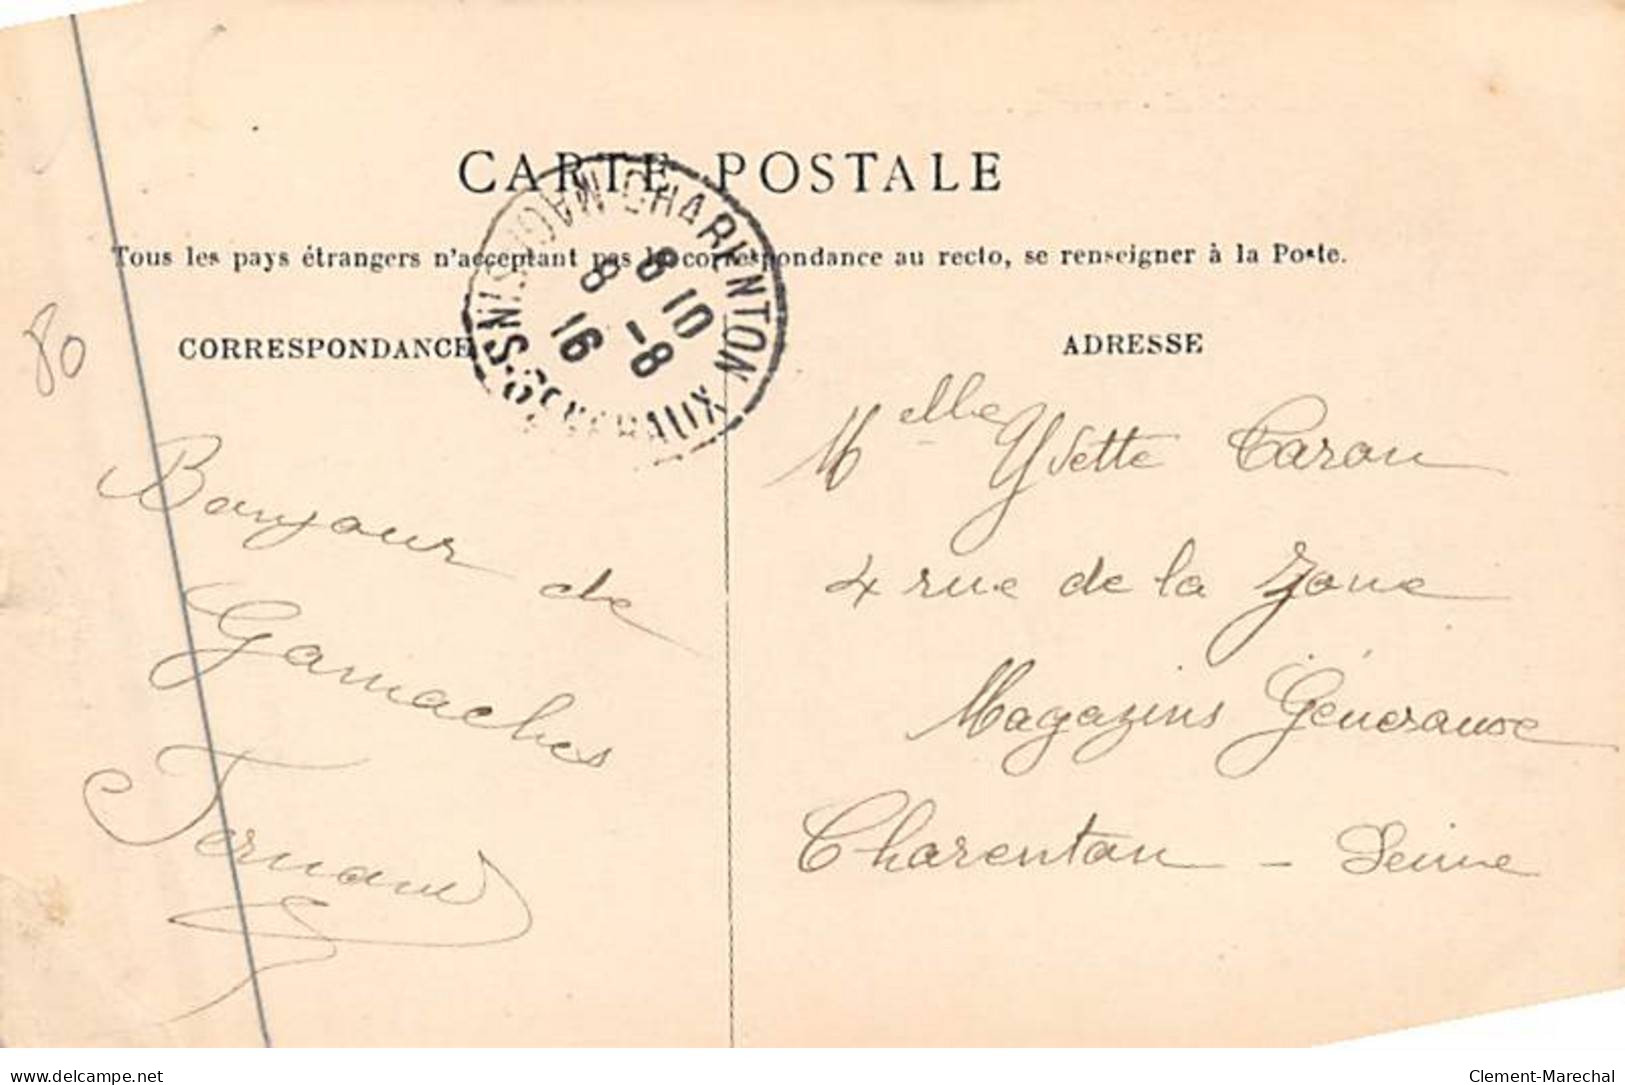 CARTE POSTALE
Tous les pays étrangers n'acceptant pas la correspondance au recto, se renseigner à la Poste.
CHARENTON
MAGASINS GENERAUX
8 10
8 -8
16
80
CORRESPONDANCE
ADRESSE
Bonjour de
Gamaches
Fernand
Melle Yvette Caron
4 rue de la Zone
Magazins Généraux
Charenton - Seine
delcampe.net
Clement-Marechal